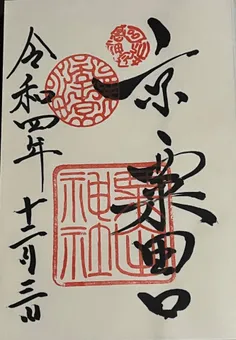 京
粟田口
粟田神社
令和四年
十二月三日